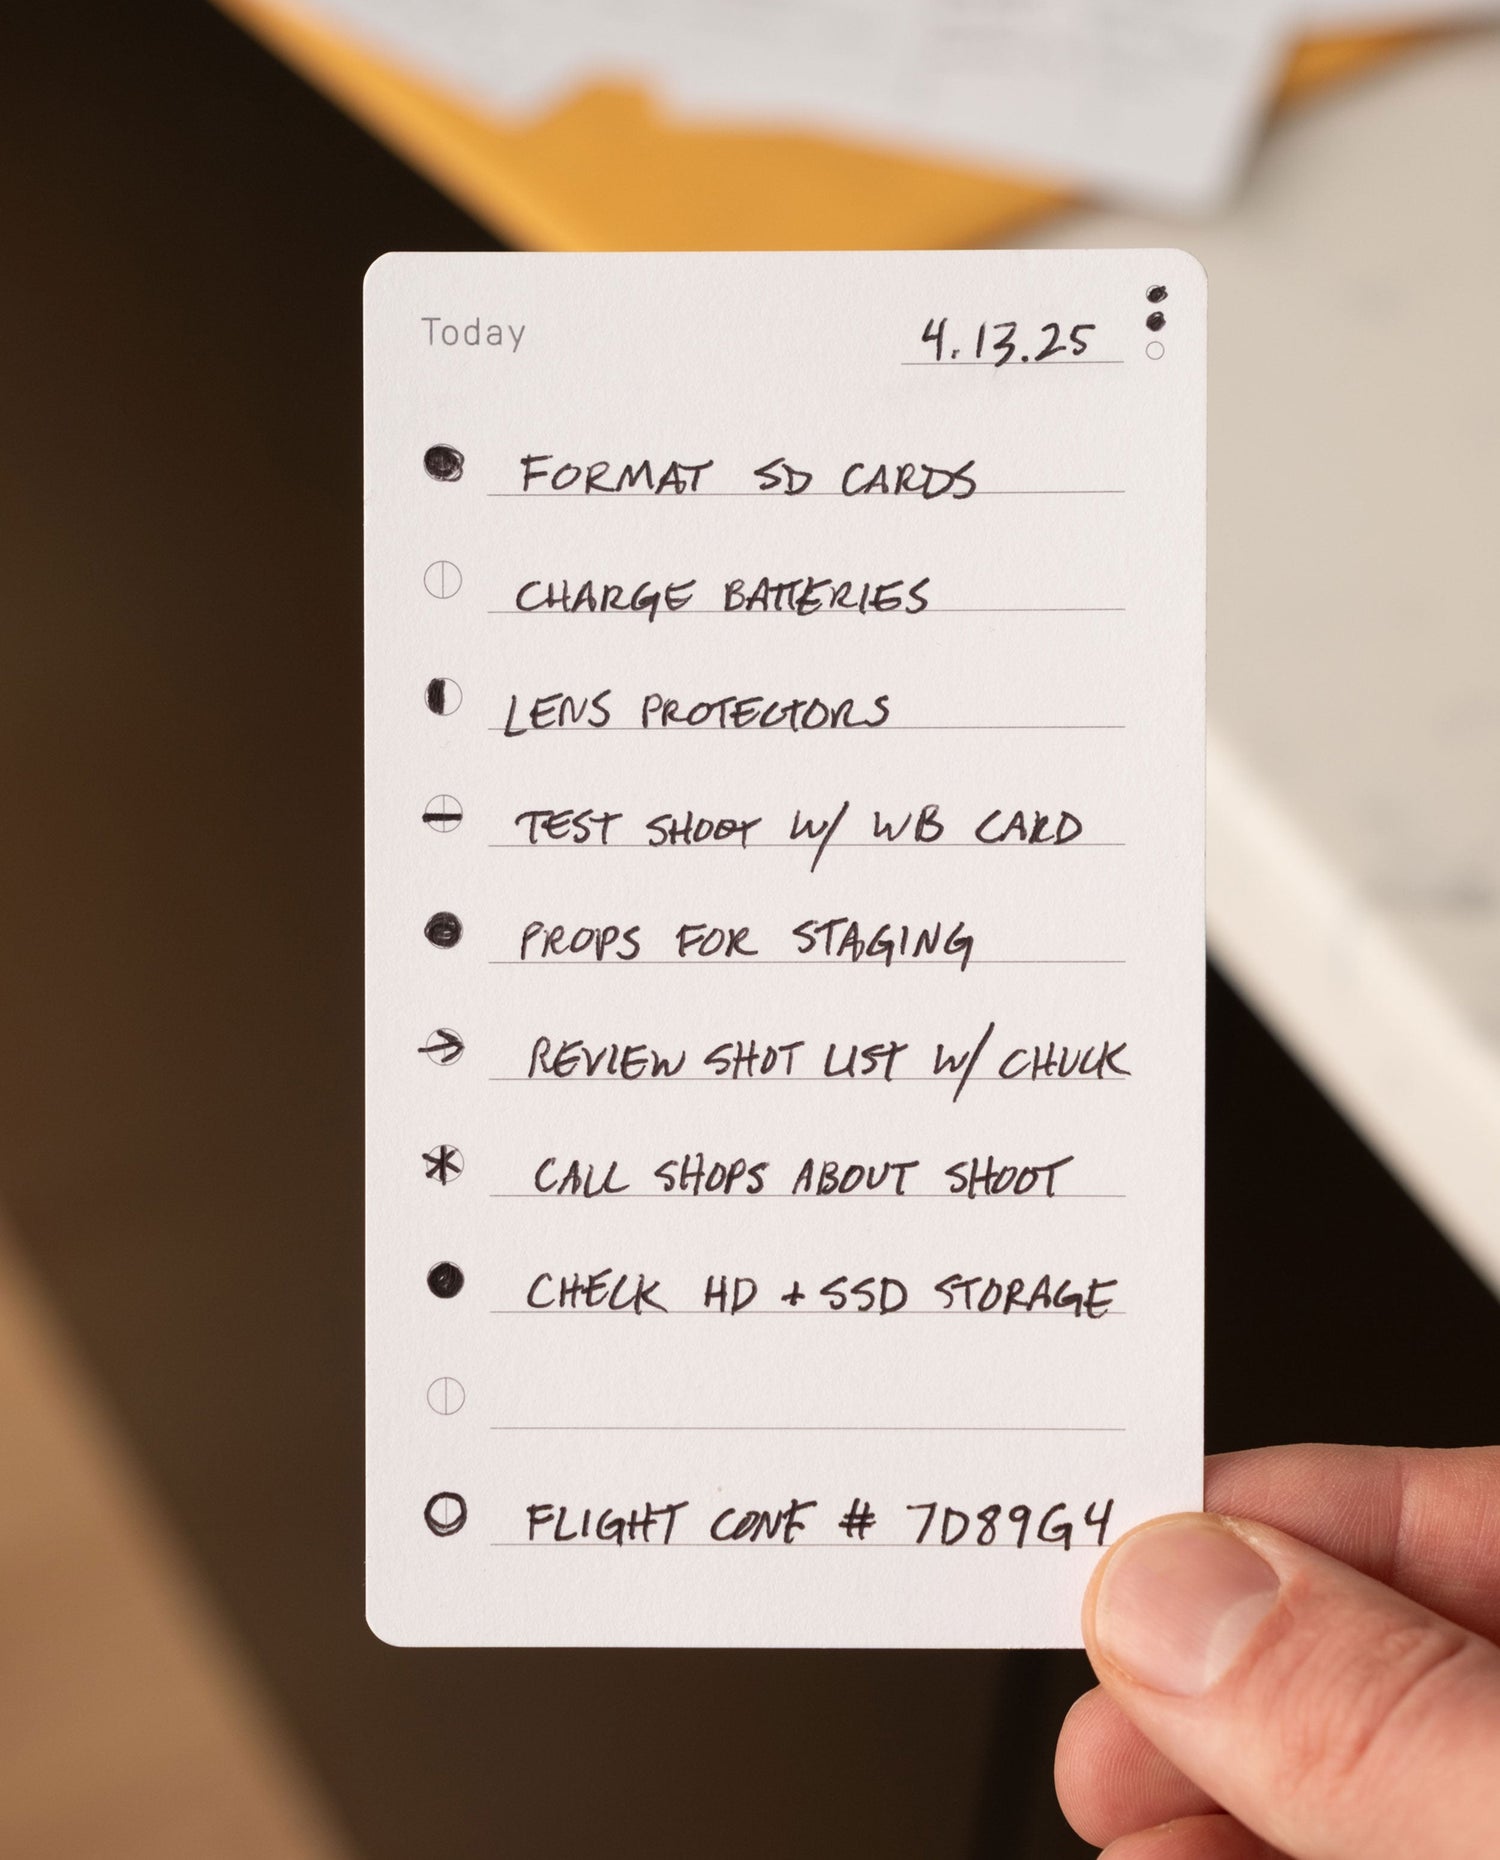 Today 4.13.25
FORMAT SD CARDS
CHARGE BATTERIES
LENS PROTECTORS
TEST SHOOT W/ WB CARD
PROPS FOR STAGING
REVIEW SHOT LIST W/ CHUCK
CALL SHOPS ABOUT SHOOT
CHECK HD + SSD STORAGE
FLIGHT CONF # 7D89G4